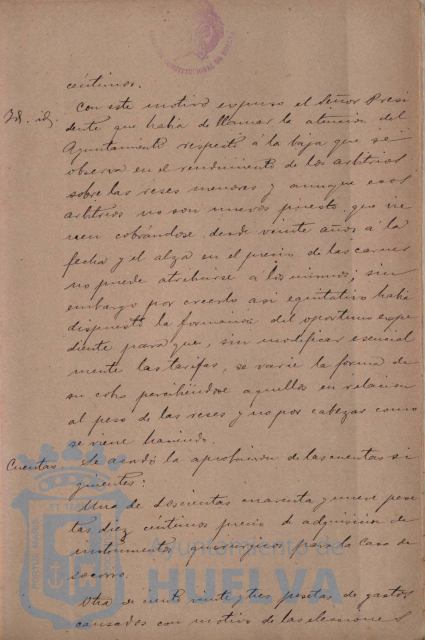 céntimos.
Id. id. Con este motivo expuso el Señor Presi
dente que habia de llamar la atencion del
Ayuntamiento respecto á la baja que se
observa en el rendimiento de los arbitrios
sobre las reses menores y aunque esos
arbitrios no son nuevos puesto que vie
nen cobrándose desde veinte años á la
fecha y el alza en el precio de las carnes
no puede atribuirse a los mismos; sin
embargo por creerlo asi equitativo habia
dispuesto la formacion del oportuno expe
diente para que, sin modificar esencial
mente las tarifas, se varie la forma de
su cobro percibiéndose aquellos en relacion
al peso de las reses y no por cabezas como
se viene haciendo.
Cuentas Se acordó la aprobacion de las cuentas si
guientes:
Una de doscientas cuarenta y nueve pese
tas diez céntimos precio de adquisicion de
instrumentos quirurgicos para la Casa de
Socorro.
Otra de ciento veinte y tres pesetas de gastos
causados con motivo de las elecciones
Ayuntamiento de
HUELVA